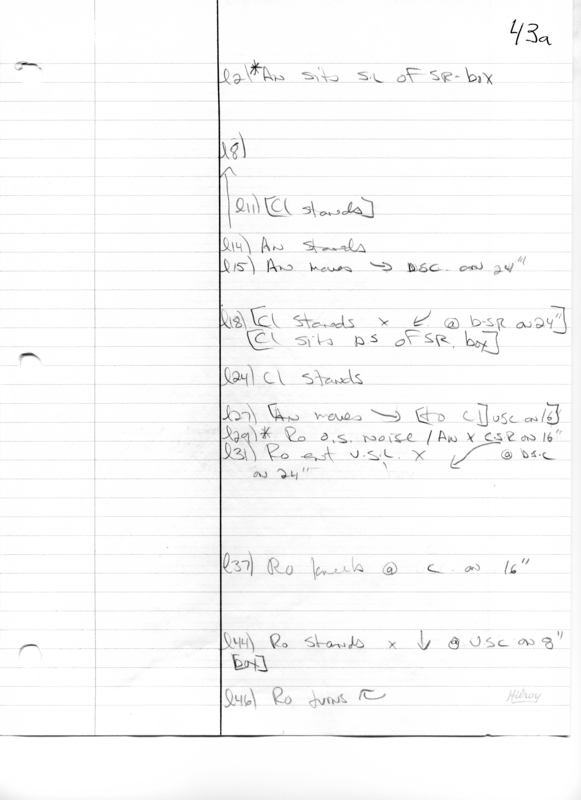 43a
l2)*An sits S.L of SR-box
l8)
l11) [Cl stands]
l14) An stands
l15) An moves → DSC. on 24"
l18) [Cl stands x ↙ @ DSR on 24"]
[Cl sits DS of SR. box]
l24) Cl stands
l27) [An moves → [to Cl] USC on 16]
l29)* Ro o.s. noise / An x CSR on 16"
l31) Ro ent U.S.L. x ↙ @ DS.C
on 24"
l37) Ro kneels @ C. on 16"
l44) Ro stands x ↓ @ USC on 8"
[box]
l46) Ro turns ↖
Hilroy